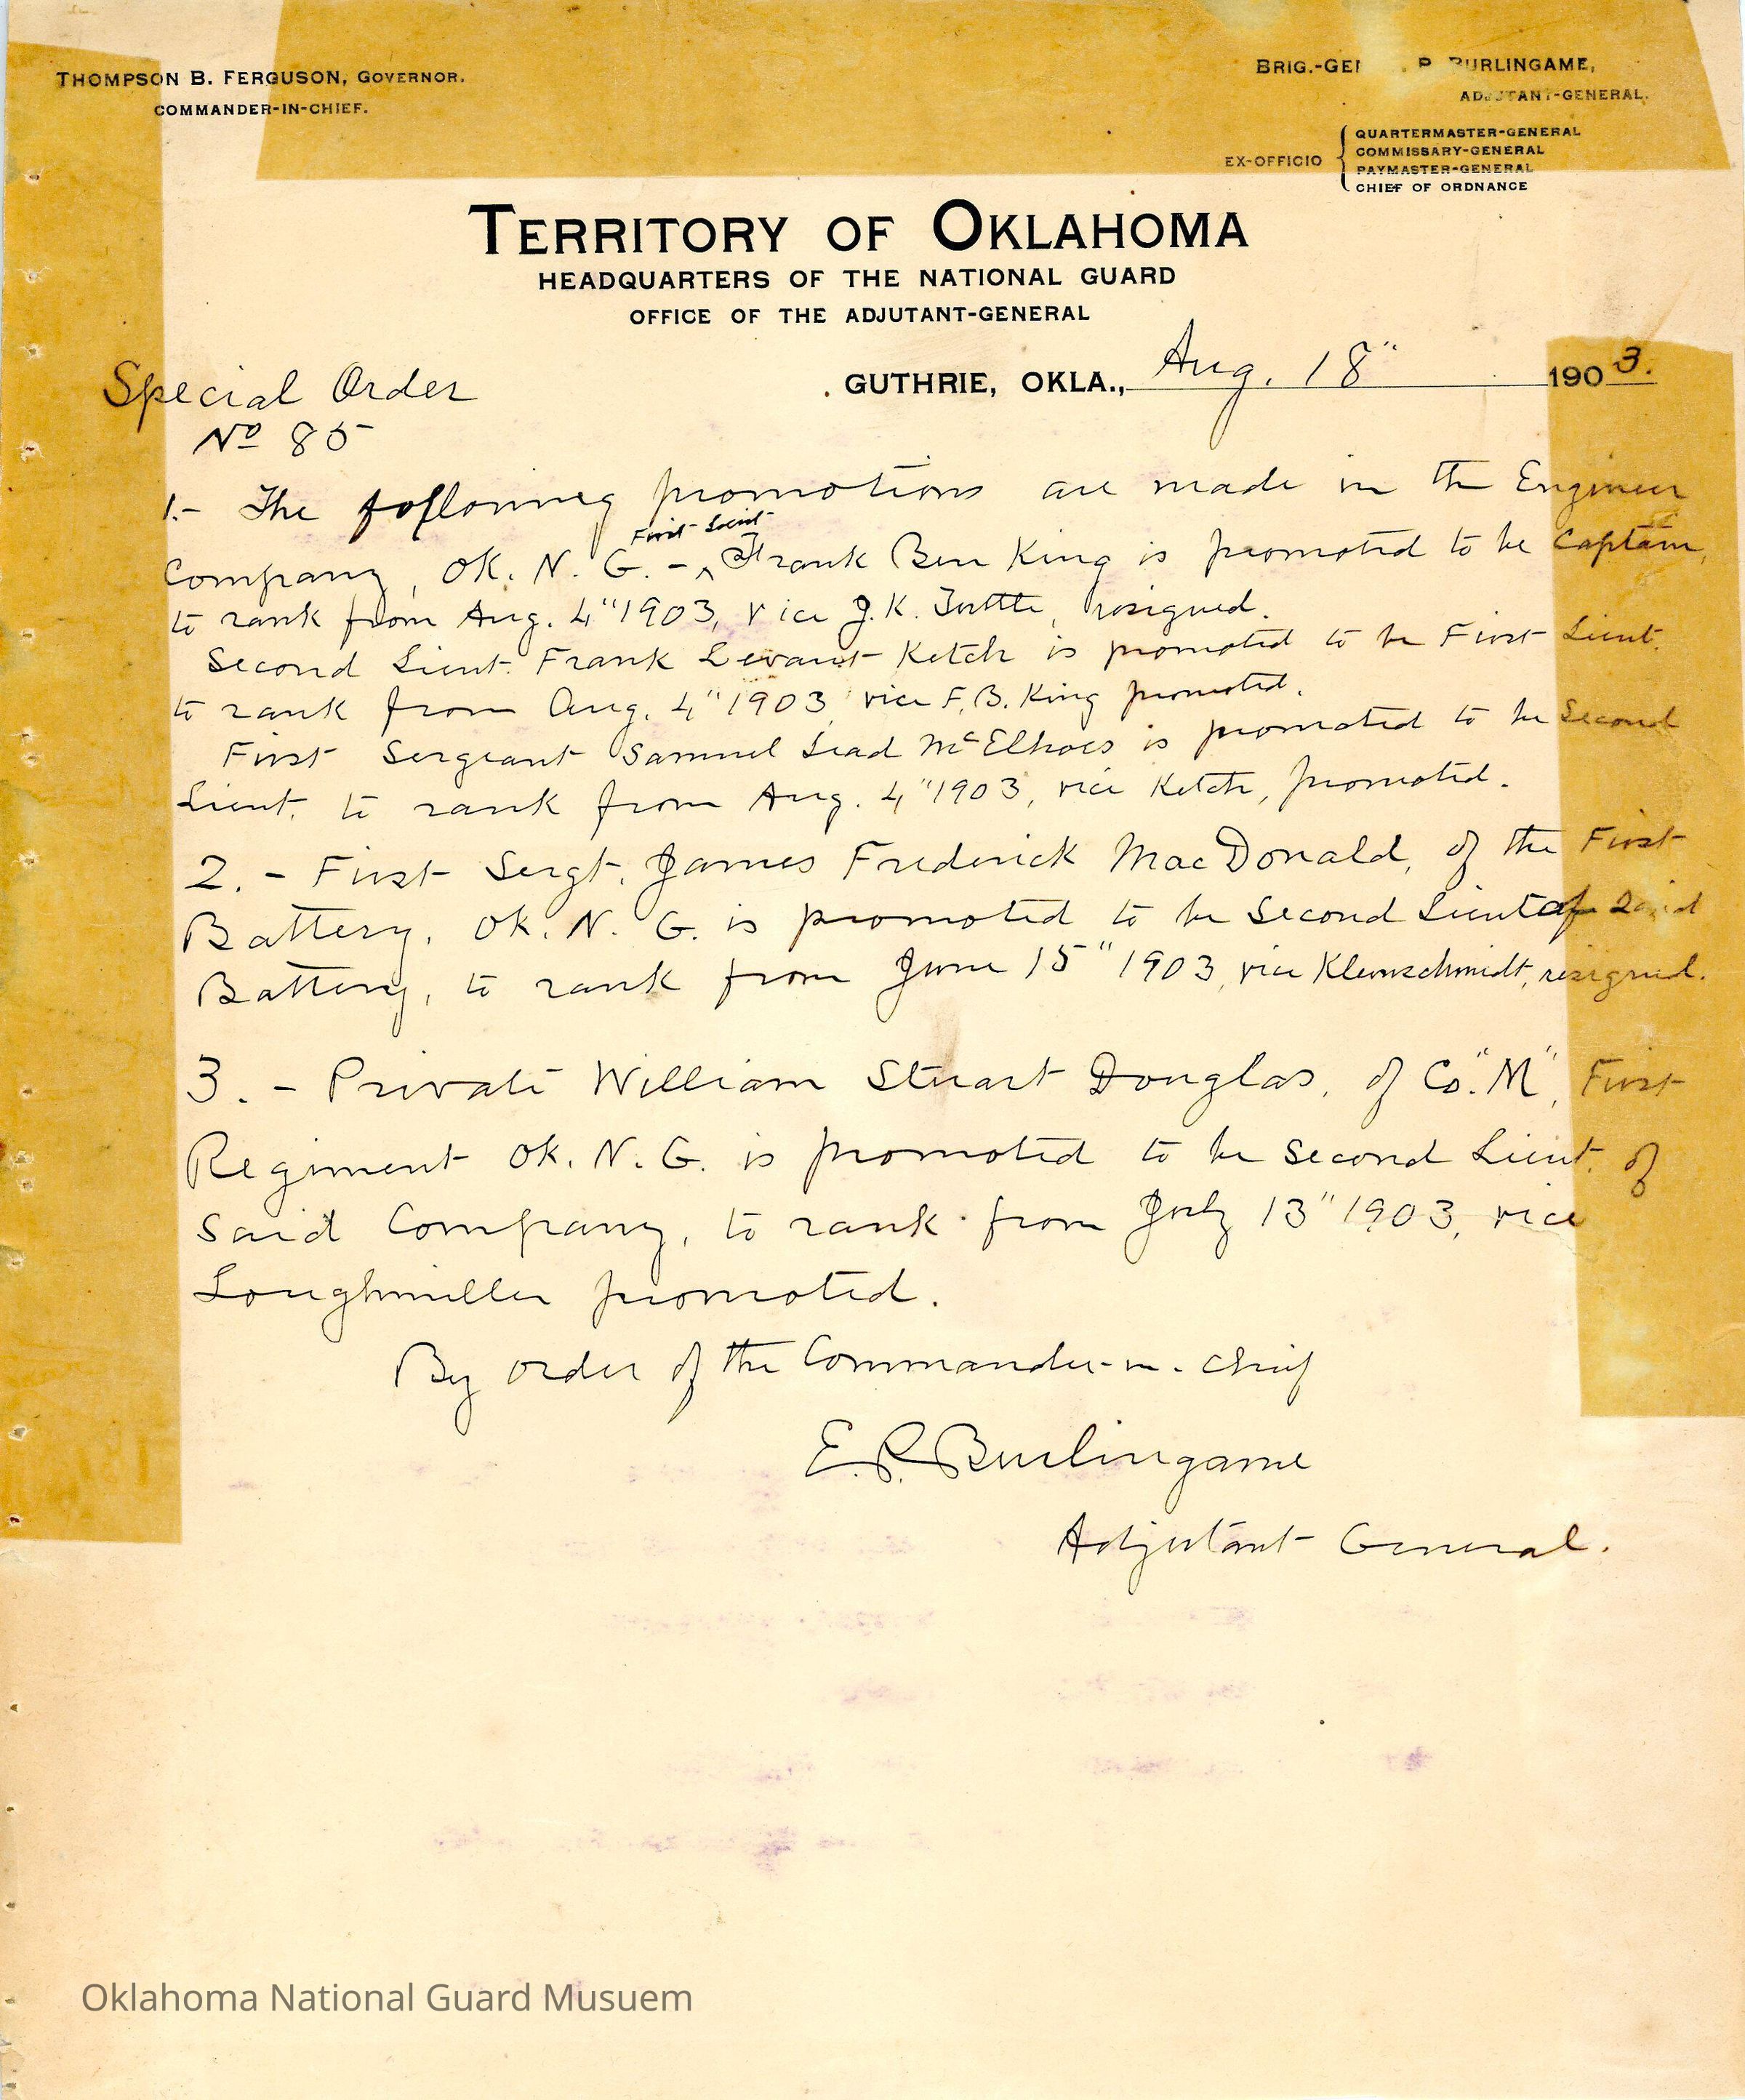 THOMPSON B. FERGUSON, GOVERNOR.
COMMANDER-IN-CHIEF.
BRIG.-GE P. BURLINGAME,
ADJUTANT-GENERAL.
EX-OFFICIO
QUARTERMASTER-GENERAL
COMMISSARY-GENERAL
PAYMASTER-GENERAL
CHIEF OF ORDNANCE
TERRITORY OF OKLAHOMA
HEADQUARTERS OF THE NATIONAL GUARD
OFFICE OF THE ADJUTANT-GENERAL
GUTHRIE, OKLA., Aug. 18" 1903.
Special Order
No 85
1.- The following promotions are made in the Engineer
First Lieut
Company, Ok. N. G. - ^ Frank Ben King is promoted to be Captain,
to rank from Aug. 4" 1903, vice J.K. Tuttle, resigned.
Second Lieut. Frank Levant Ketch is promoted to be First Lieut.
to rank from Aug. 4" 1903 vice F.B. King promoted.
First Sergeant Samuel McElhoes is promoted to be Second
Lieut. to rank from Aug. 4" 1903, vice Ketch, promoted.
2. - First Sergt. James Frederick MacDonald, of the First
Battery, Ok. N. G. is promoted to be Second Lieut of said
Battery, to rank from June 15" 1903, vice Kleinschmidt, resigned.
3. - Private William Stuart Douglas, of Co. "M", First
Regiment Ok. N. G. is promoted to be Second Lieut. of
said Company, to rank from July 13" 1903, vice
Loughmiller promoted.
By order of the Commander-in-Chief
E.P. Burlingame
Adjutant General.
Oklahoma National Guard Musuem